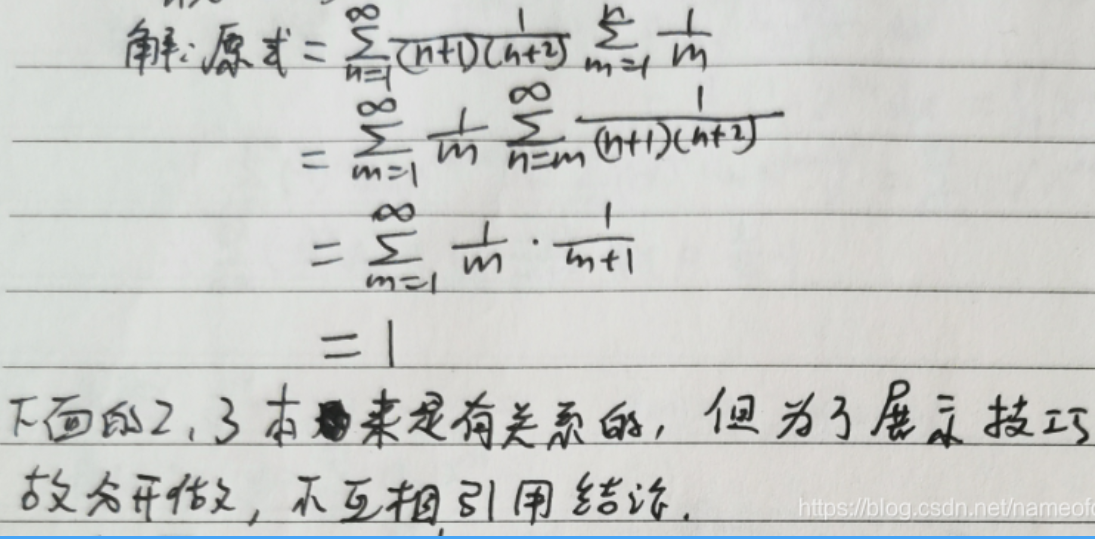 解:原式 = ∑_{n=1}^{∞} 1/((n+1)(n+2)) ∑_{m=1}^{n} 1/m
= ∑_{m=1}^{∞} 1/m ∑_{n=m}^{∞} 1/((n+1)(n+2))
= ∑_{m=1}^{∞} 1/m · 1/(m+1)
= 1
下面的2、3本来是有关系的,但为了展示技巧
故分开做,不互相引用结论.
https://blog.csdn.net/nameofc